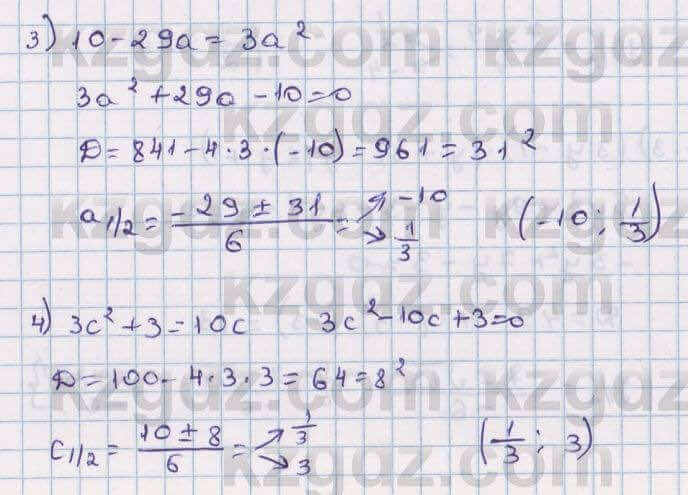 3) 10 - 29a = 3a²
3a² + 29a - 10 = 0
D = 841 - 4·3·(-10) = 961 = 31²
a₁/₂ = (-29 ± 31)/6 = ↗ -10 ↘ 1/3 (-10; 1/3)
4) 3c² + 3 = 10c 3c² - 10c + 3 = 0
D = 100 - 4·3·3 = 64 = 8²
c₁/₂ = (10 ± 8)/6 = ↗ 1/3 ↘ 3 (1/3; 3)
kzgdz.com